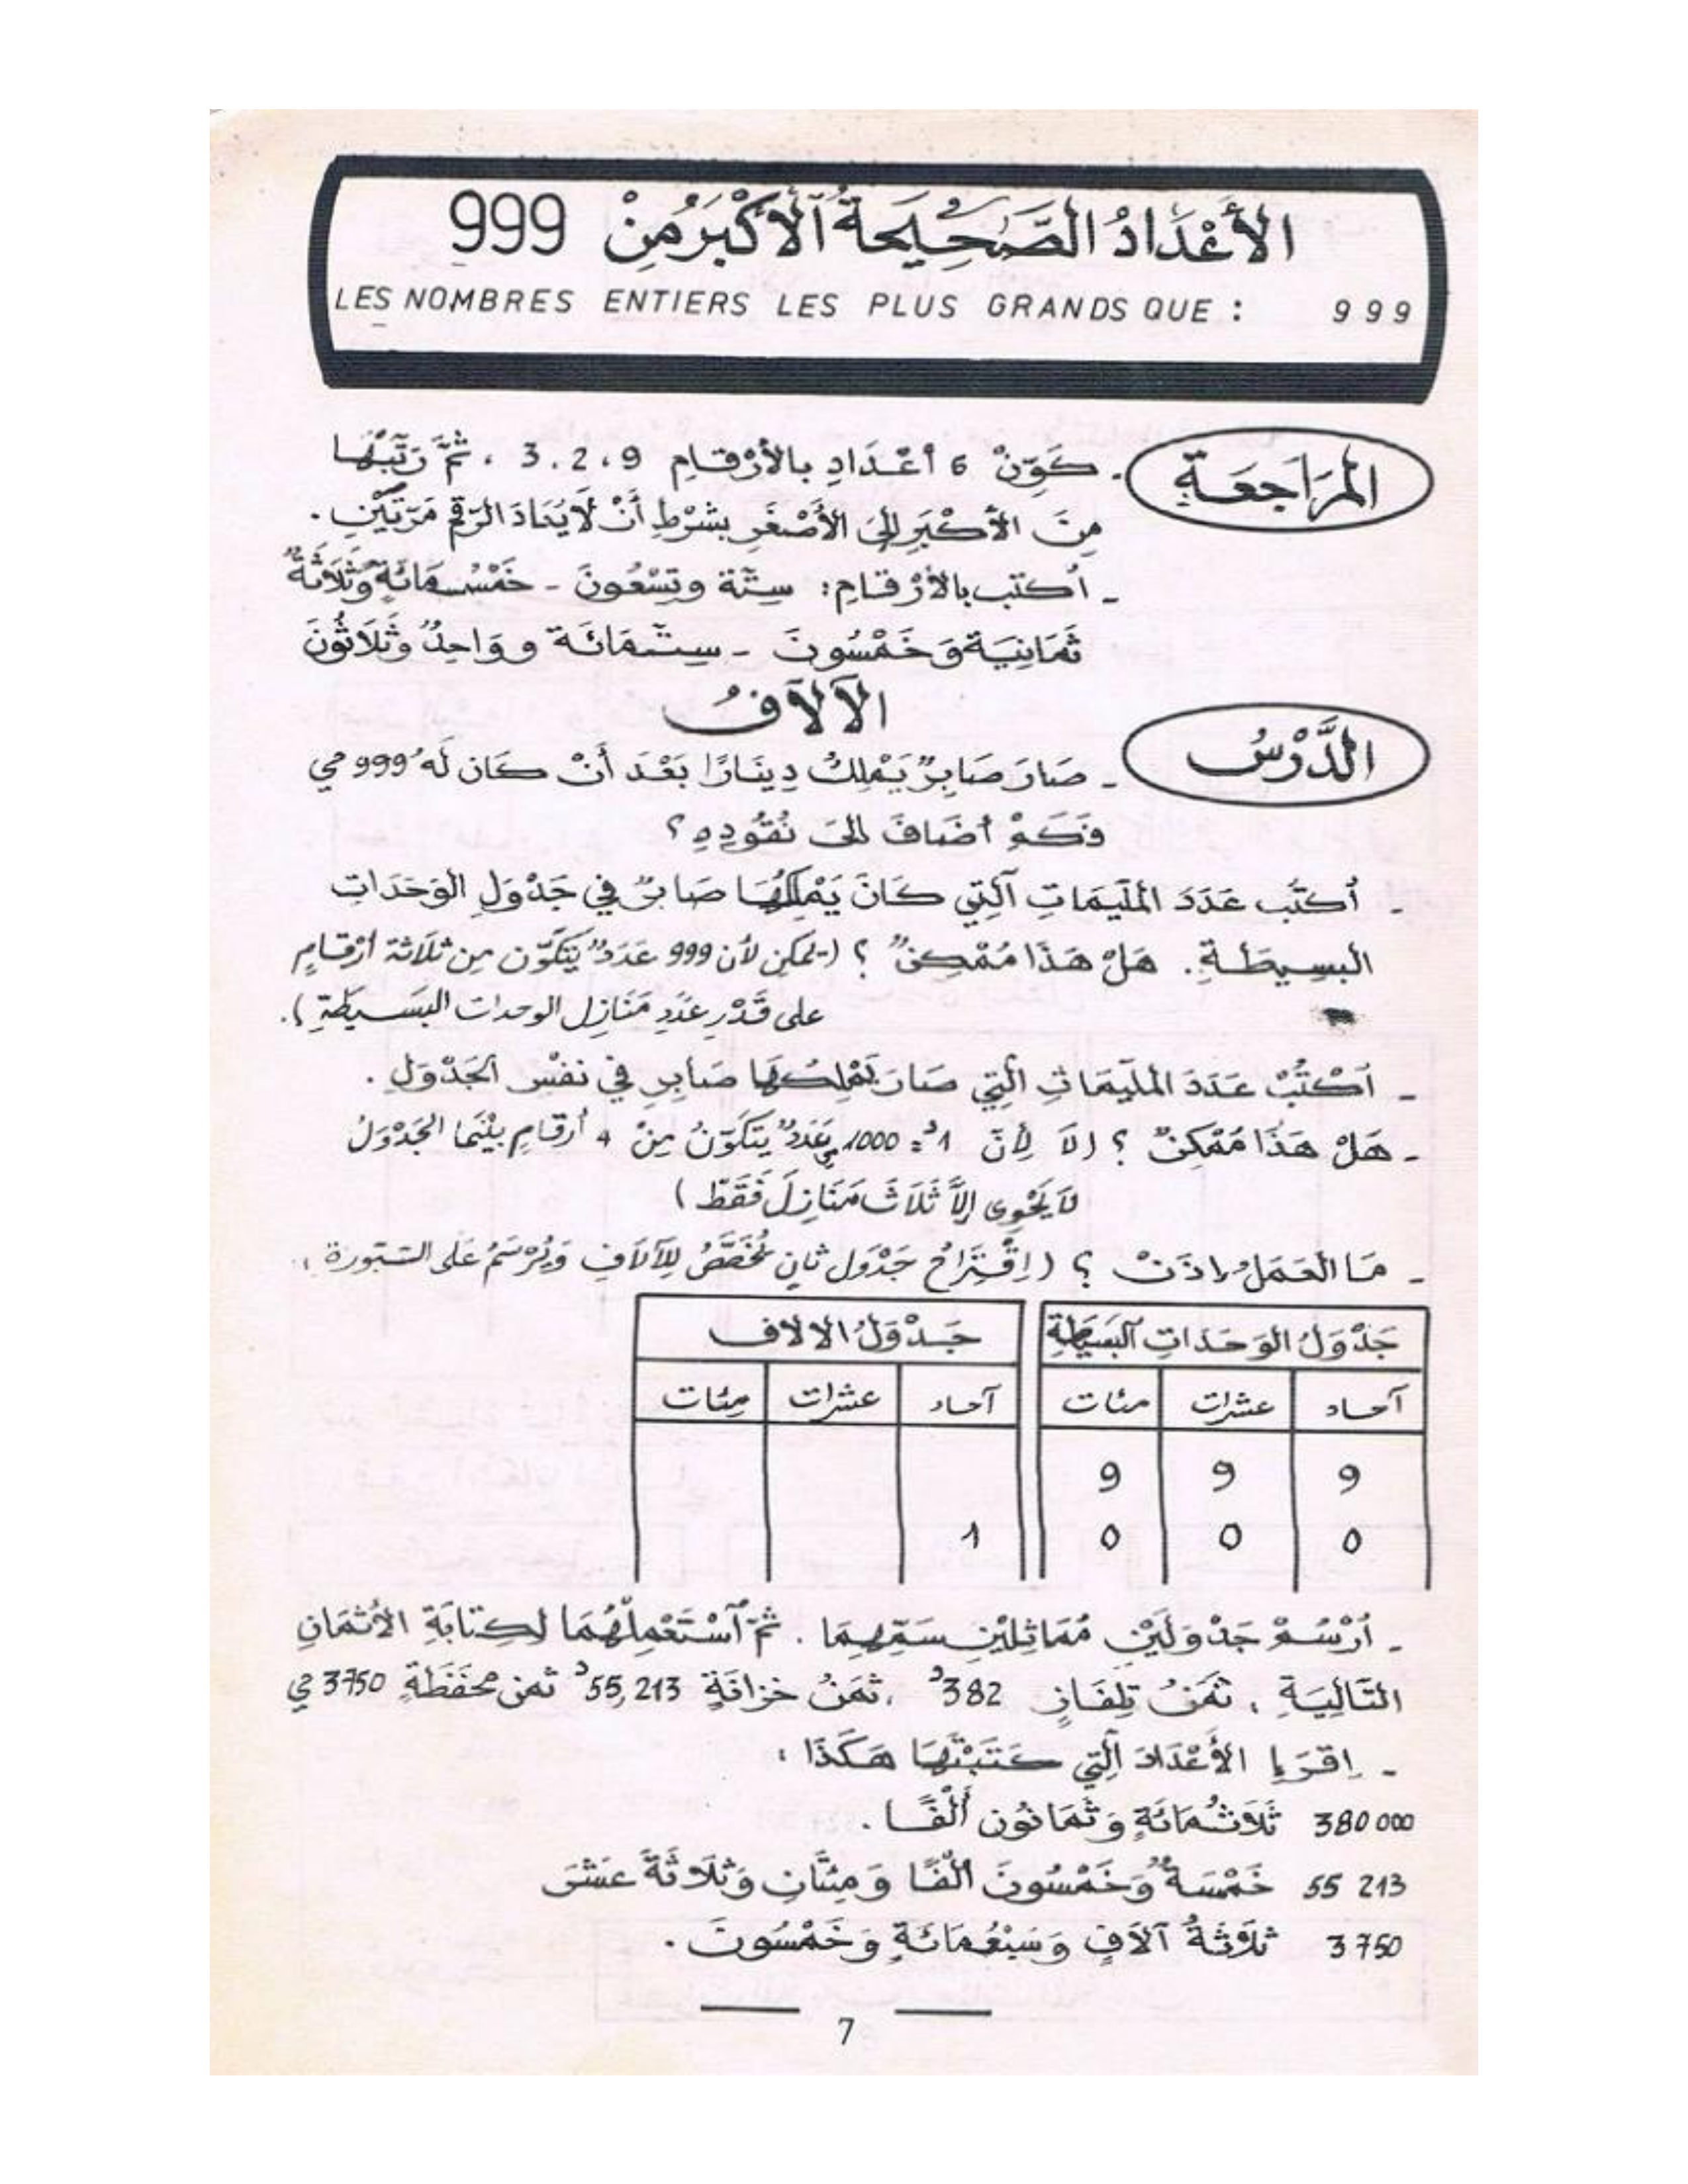 الأَعْدَادُ الصَّحِيحَةُ ٱلأَكْبَرُ مِنْ 999
LES NOMBRES ENTIERS LES PLUS GRANDS QUE : 999
المُرَاجَعَةُ
- كَوِّنْ 6 أعْدَادٍ بالأرْقامِ 9 ، 2 . 3 ، ثُمَّ رَتِّبْهَا
مِنَ الأَكْبَرِ إلَى الأَصْغَرِ بشَرْطِ أَنْ لَا يُعَادَ الرّقم مَرّتَيْنِ .
- اُكتب بالأرْقامِ : سِتّة وتِسْعُونَ - خَمْسُمَائَةٍ وَثَلَاثَةٌ
ثَمَانِيَة وَخَمْسُونَ - سِتّمَائَة وَوَاحِدٌ وَثَلَاثُونَ
الآلاَفُ
الدَّرْسُ
- صَارَ صَابِرٌ يَمْلِكُ دِينَارًا بَعْدَ أَنْ كَان لَهُ 999 مي
فَكَمْ أضَافَ إلىَ نُقُودِهِ ؟
- اُكتُب عَدَدَ المُلَّيمَاتِ ٱلَّتِي كَانَ يَمْلِكُهَا صَابرٌ في جَدْوَلِ الوَحَدَاتِ
البسِيطَةِ . هَلْ هَذَا مُمْكِنٌ ؟ (يمكن لأن 999 عَدَدٌ يَتَكَوَّن مِن ثلَاثة أرْقامٍ
على قَدْرِ عَدَدِ مَنَازِل الوحدات البَسِيطَةِ ).
- اُكْتُبْ عَدَدَ المُلَّيمَاتِ الَّتِي صَارَ يَمْلِكُهَا صَابِرٌ في نفْس الجَدْوَلِ .
- هَلْ هَذَا مُمْكِنٌ ؟ (لَا لِأنّ 1د = 1000مي عَدَدٌ يَتَكَوّنُ مِنْ 4 أرقامٍ بيْنَمَا الجَدْوَلُ
لاَ يَحْوِي إلاَّ ثَلَاثَ مَنَازِلَ فَقَطْ )
- مَا العَمَلُ إذَنْ ؟ (اِقْتِرَاحُ جَدْوَل ثانٍ مُخَصَّصٌ لِلآلَافِ وَيُرْسَمُ عَلى السّبّورة .
جَدْوَلُ الوَحَدَاتِ البَسِيطَةِ جَدْوَلُ الالاف
آحاد عشرات مئات آحاد عشرات مِئات
9 9 9
0 0 0 1
- اُرْسُمْ جَدْوَلَيْنِ مُمَاثِلَيْنِ سَمِّهِمَا . ثُمّ ٱسْتَعْمِلْهُمَا لِكِتابَةِ الأَثْمَانِ
التَّالِيَةِ : ثمَنُ تِلفَازٍ 382د ، ثمَنُ خزانَةٍ 55,213د ثمن محْفَظَةٍ 3750 مي
- اِقرَإ الأَعْدَادَ الَّتِي كَتَبْتَهَا هَكَذَا :
380 000 ثَلَاثُمَائَةٍ وَثَمَانُون أَلْفًا .
55 213 خَمْسَةٌ وَخَمْسُونَ أَلْفًا وَمِئَتَانِ وَثَلَاثَةَ عَشَرَ
3750 ثلَاثَةُ آلَافٍ وَسَبْعُمَائَةٍ وَخَمْسُونَ .
7